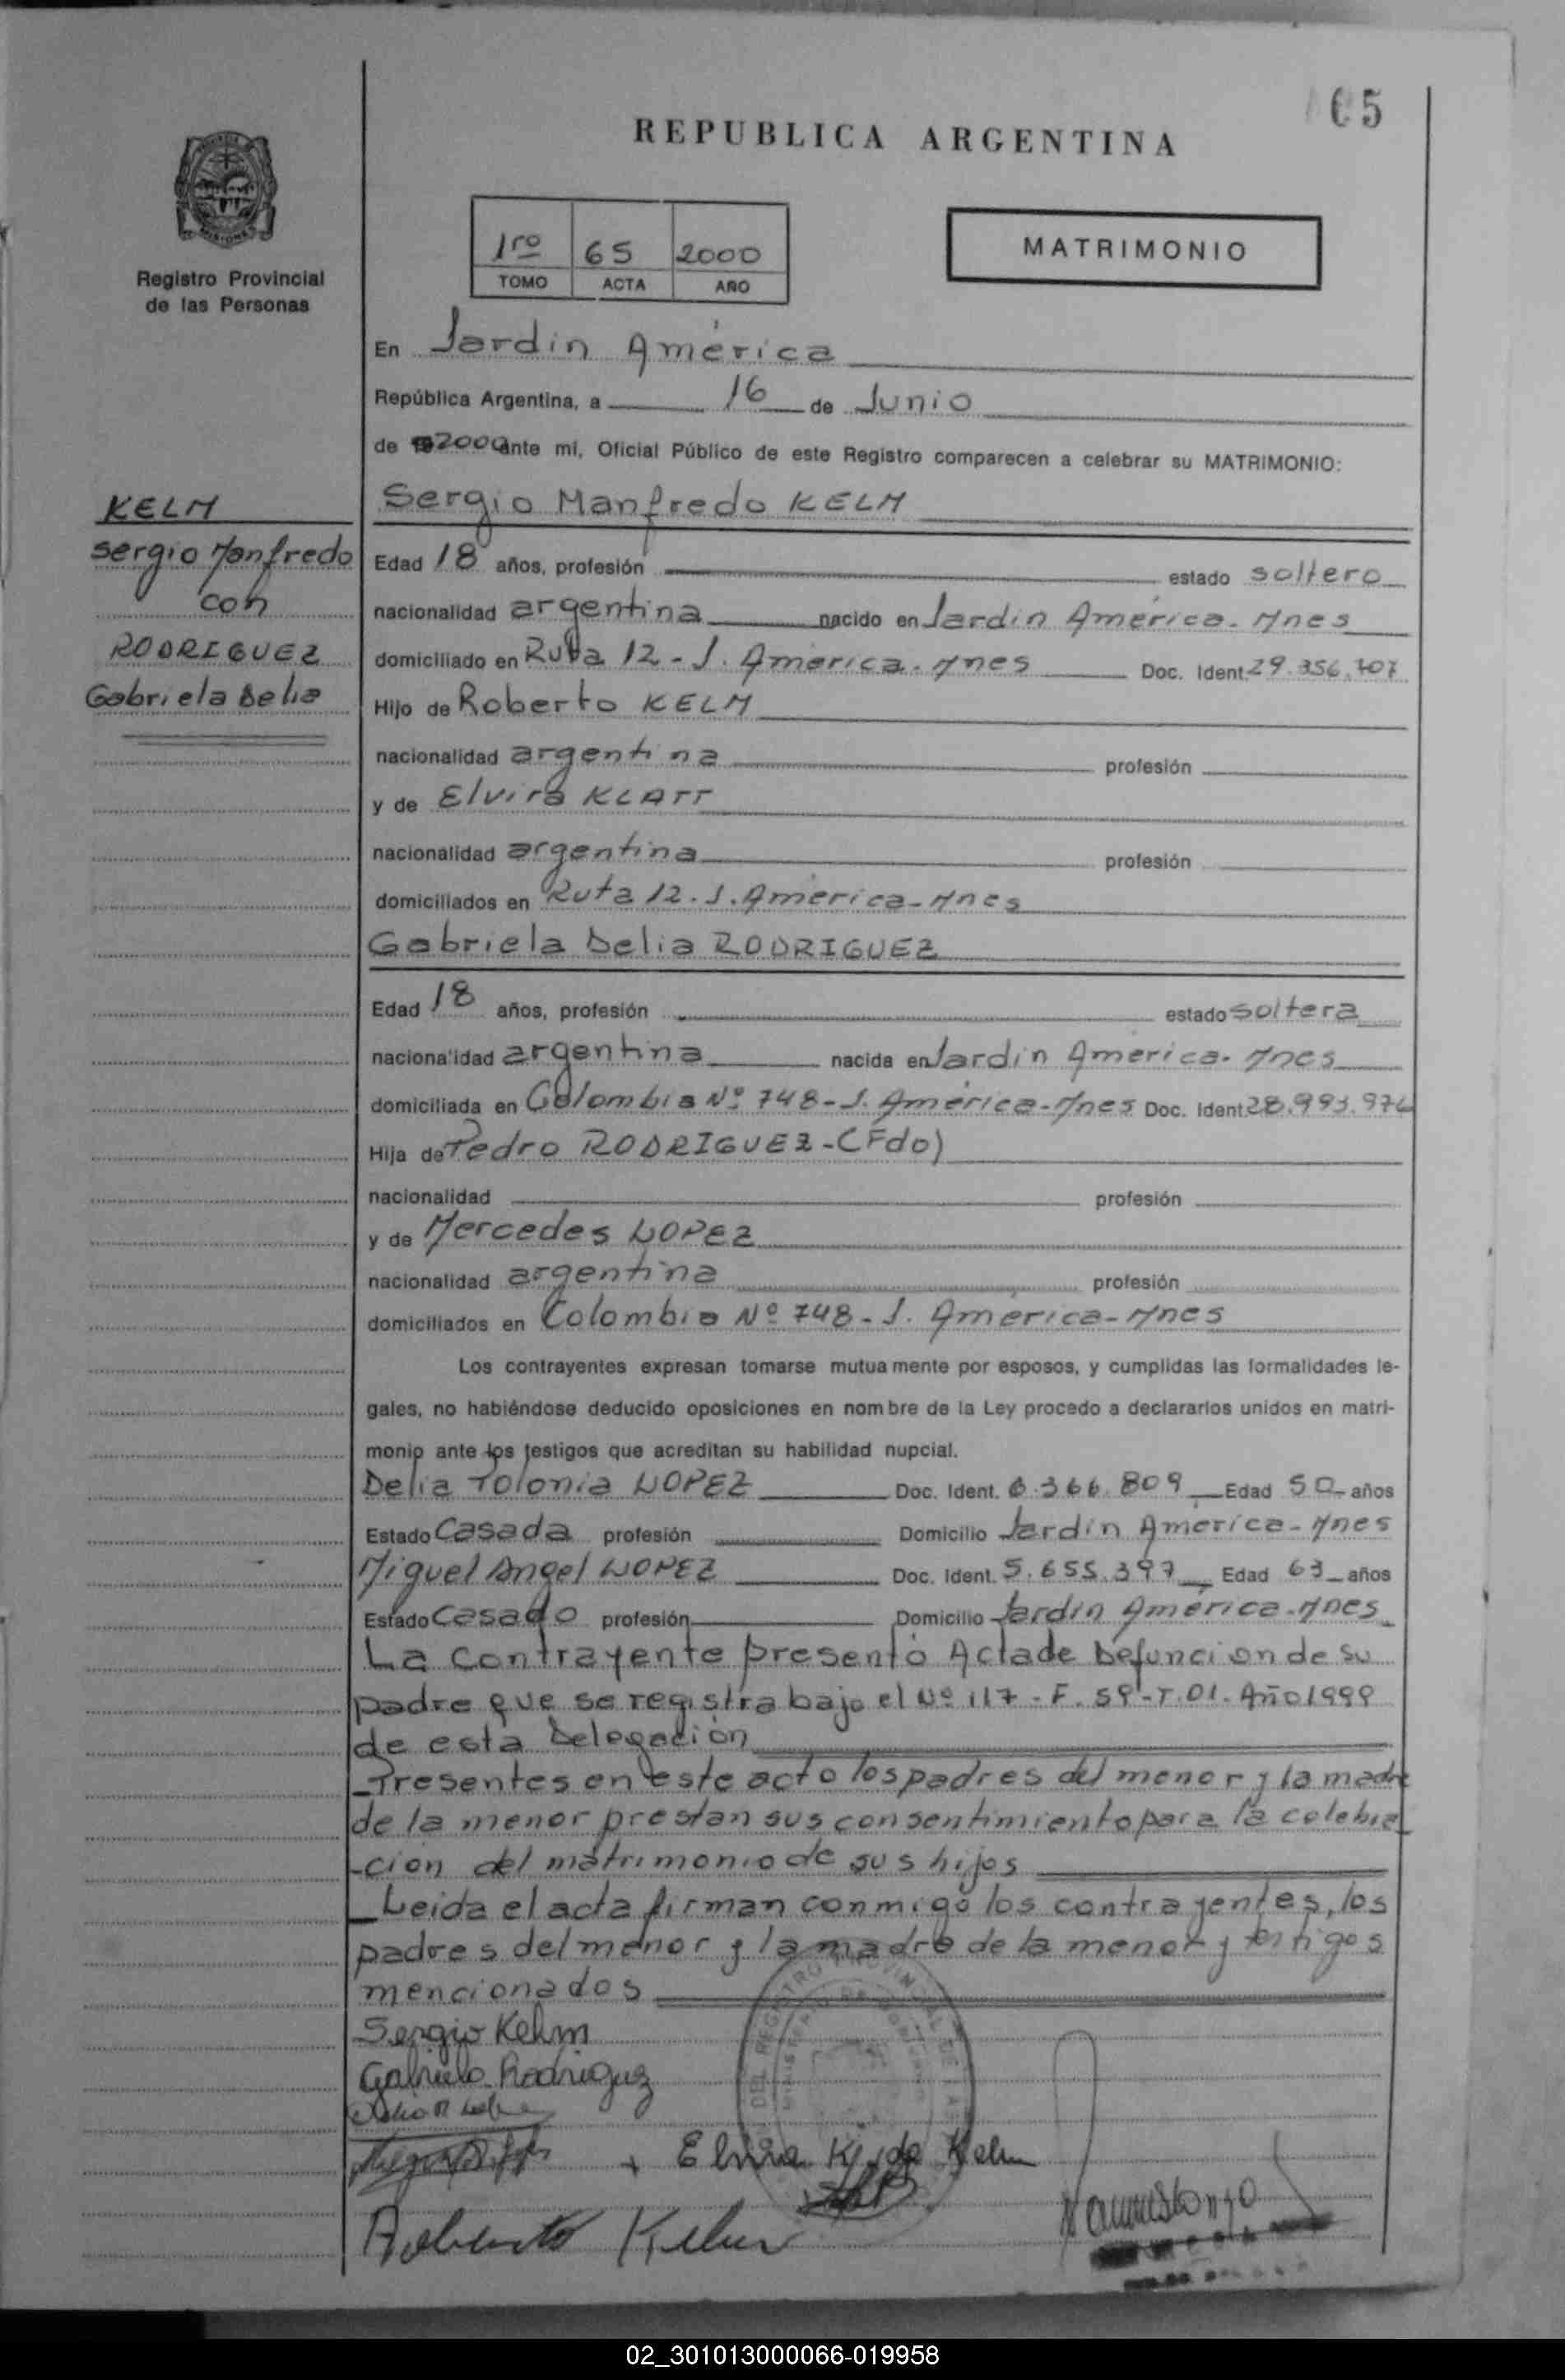 65
REPUBLICA ARGENTINA
Registro Provincial
de las Personas
1ro 65 2000
TOMO ACTA AÑO
MATRIMONIO
En Jardín América
República Argentina, a 16 de Junio
de 2000 ante mi, Oficial Público de este Registro comparecen a celebrar su MATRIMONIO:
KELM
Sergio Manfredo
con
RODRIGUEZ
Gabriela Delia
Sergio Manfredo KELM
Edad 18 años, profesión estado soltero
nacionalidad argentina nacido en Jardín América. Mnes
domiciliado en Ruta 12 - J. América. Mnes Doc. Ident. 29.356.707
Hijo de Roberto KELM
nacionalidad argentina profesión
y de Elvira KLATT
nacionalidad argentina profesión
domiciliados en Ruta 12. J. América - Mnes
Gabriela Delia RODRIGUEZ
Edad 18 años, profesión estado soltera
nacionalidad argentina nacida en Jardín América. Mnes
domiciliada en Colombia Nº 748 - J. América - Mnes Doc. Ident. 28.993.976
Hija de Pedro RODRIGUEZ - (Fdo)
nacionalidad profesión
y de Mercedes LOPEZ
nacionalidad argentina profesión
domiciliados en Colombia Nº 748 - J. América - Mnes
Los contrayentes expresan tomarse mutuamente por esposos, y cumplidas las formalidades le-
gales, no habiéndose deducido oposiciones en nombre de la Ley procedo a declararlos unidos en matri-
monio ante los testigos que acreditan su habilidad nupcial.
Delia Polonia LOPEZ Doc. Ident. 6.366.809 Edad 50 años
Estado Casada profesión Domicilio Jardín América - Mnes
Miguel Angel LOPEZ Doc. Ident. 5.655.397 Edad 63 años
Estado Casado profesión Domicilio Jardín América. Mnes
La contrayente presentó Acta de Defunción de su
padre que se registra bajo el Nº 117 - F. 59 - T. 01. Año 1999
de esta Delegación
Presentes en este acto los padres del menor y la madre
de la menor prestan sus consentimiento para la celebra
-ción del matrimonio de sus hijos
Leída el acta firman conmigo los contrayentes, los
padres del menor y la madre de la menor y testigos
mencionados
Sergio Kelm
Gabriela Rodriguez
Elvira K. de Kelm
Roberto Kelm
02_301013000066-019958